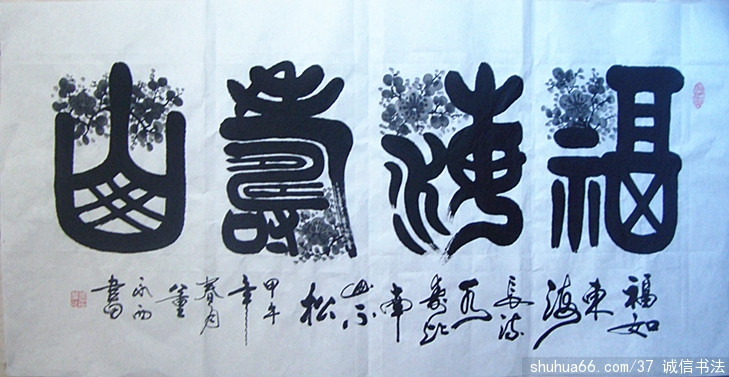 福海壽山
福如
東
海
長流
水
壽比
南
山不
松
甲午
年
春月
書
shuhua66.com/37 诚信书法